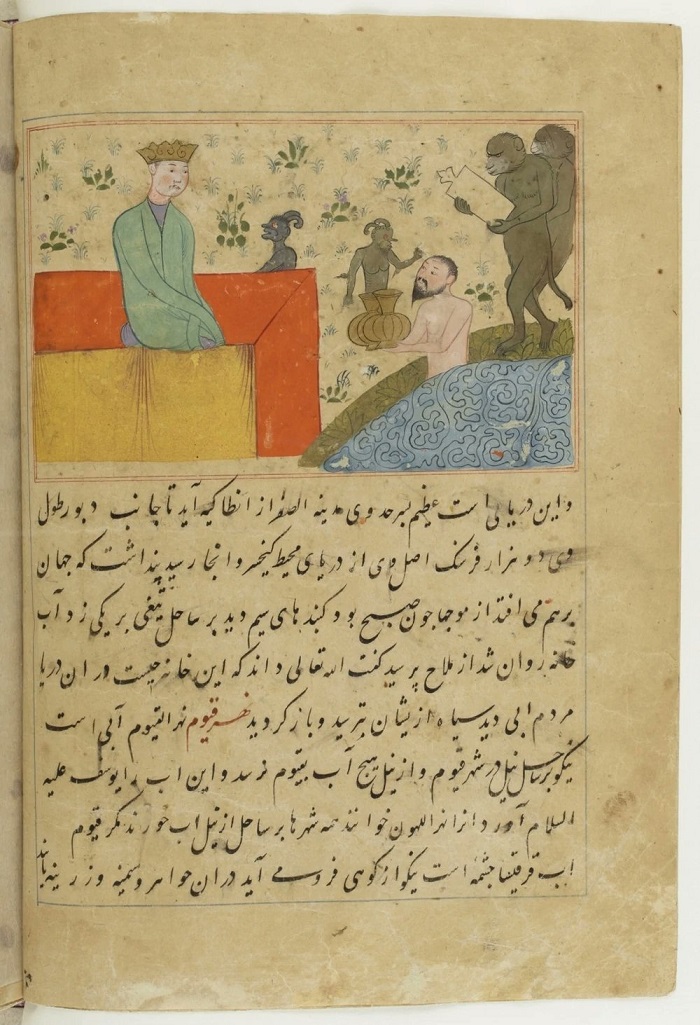 و این دریایی است عظیم بسرحد وی مدینه از انطاکیه آید تا جانب دبور طول
وی دو هزار فرسنک اصل وی از دریای محیط کیخسرو انجا رسید پنداشت که جهان
برهم می افتد از موجها جون صبح بود کنبدهای سیم دید بر ساحل بر یکی زد آب
خانه روان شد از ملاح پرسید کفت الله تعالی داند که این خانه جیست در ان دریا
مردم ابی دید سیاه ازیشان بترسید و باز کردید نهر قیوم نهر القیوم آبی است
نیکو بر ساحل نیل در شهر قیوم و از نیل هیج آب بقیوم نرسد و این اب را یوسف علیه
السلام آورد از انرا اللهون خوانند همه شهرها بر ساحل از نیل اب خورند مکر قیوم
اب جشمه است نیکو از کوهی فرو می آید در ان جواهر و سیمینه و زرینه یابند